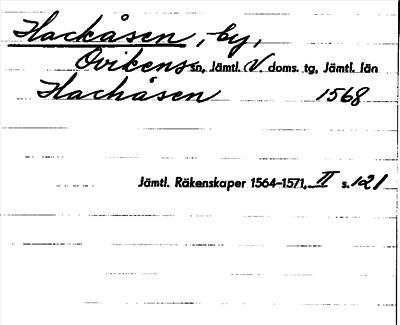 Hackåsen, by,
Ovikens sn, Jämtl. V. doms. tg, Jämtl. län
Hachåsen 1568
Jämtl. Räkenskaper 1564–1571, II s. 121